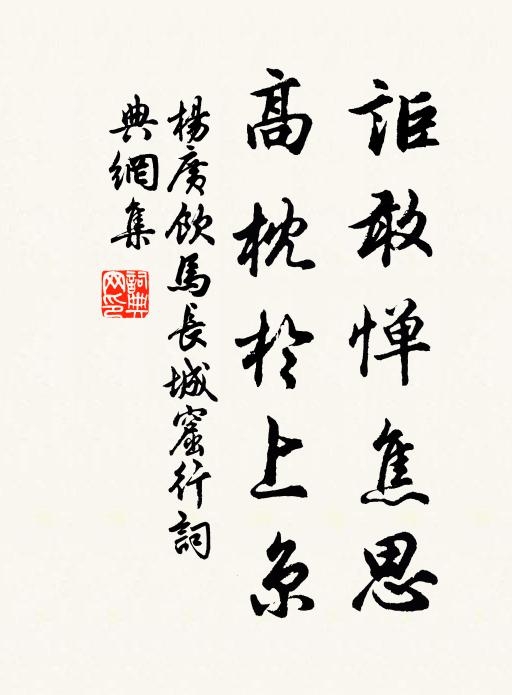 詎敢憚焦思
高枕於上京
楊廣飲馬長城窟行詞
典網集
詞典
网印